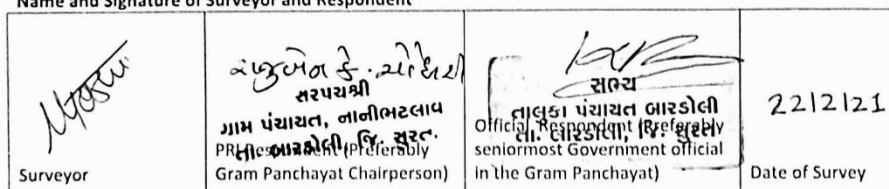 Name and Signature of Surveyor and Respondent
Surveyor
સરપંચશ્રી
ગામ પંચાયત, નાનીભટલાવ
તા. બારડોલી, જિ. સુરત.
PRI Respondent (Preferably
Gram Panchayat Chairperson)
સભ્ય
તાલુકા પંચાયત બારડોલી
તા. બારડોલી, જિ. સુરત
Official Respondent (Preferably
seniormost Government official
in the Gram Panchayat)
22/2/21
Date of Survey